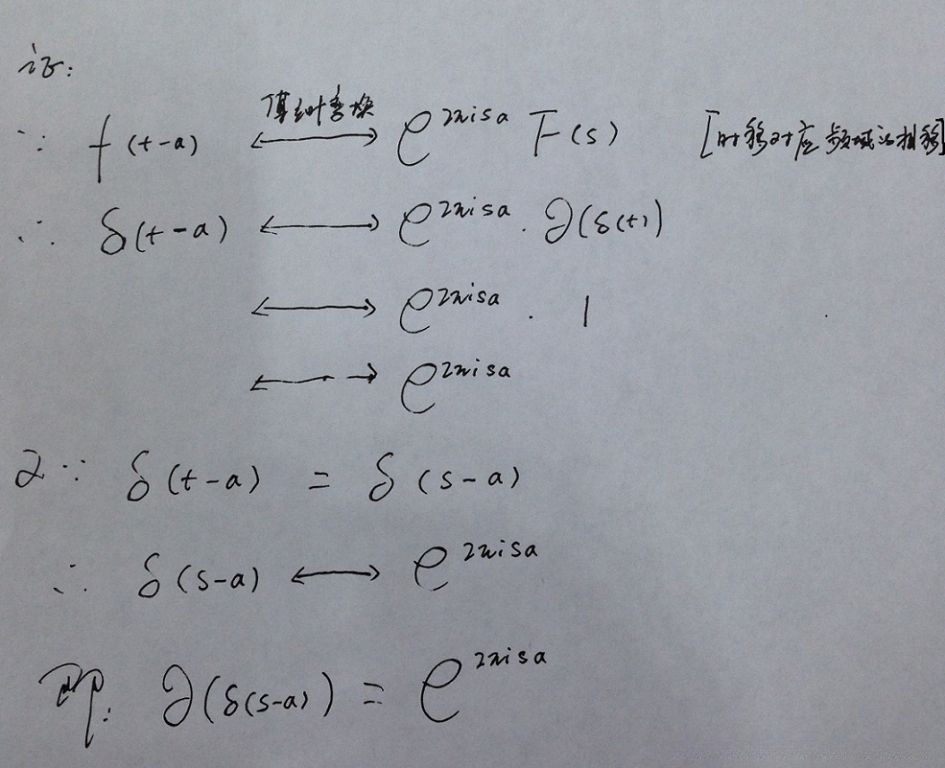 证:
∵ f(t-a) ←傅利叶变换→ e^{2πisa} F(s) [时移对应频域的相移]
∴ δ(t-a) ←→ e^{2πisa} · ∂(δ(t))
←→ e^{2πisa} · 1
←→ e^{2πisa}
又∵ δ(t-a) = δ(s-a)
∴ δ(s-a) ←→ e^{2πisa}
即: ∂(δ(s-a)) = e^{2πisa}